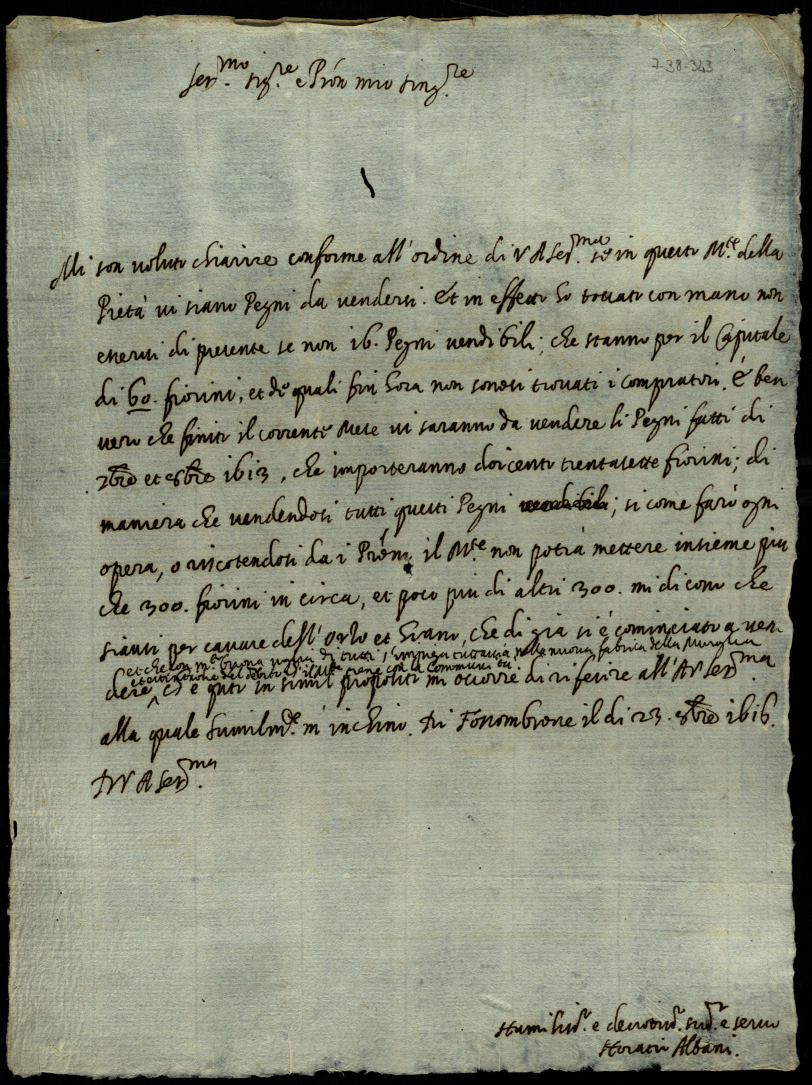 7-38-343
Ser.mo Sig.re e Prōn mio sing.re
Mi son voluto chiarire conforme all'ordine di V A Ser.ma se in questo M.te della
Pietà vi siano Pegni da vendersi. Et in effetto ho trovato con mano non
esservi di presente se non 16. Pegni vendibili; che stanno per il Capitale
di 60. fiorini, et de quali fin hora non sonosi trovati i compratori. È ben
vero che finito il corrente Mese vi saranno da vendere li Pegni fatti di
7bre et 8bre 1613, che importeranno doicento trentasette fiorini; di
maniera che vendendosi tutti questi Pegni vendibili; si come farò ogni
opera, o riscotendosi da i Prōni il M.te non potrà mettere insieme più
che 300. fiorini in circa, et poco più di altri 300. mi dicono che
sianvi per cavare dell'orzo et Grano, che di già si è cominciato a ven-
et che con m.to buona voglia di tutti s'impiega tuttavia nella nuova fabrica della Muraglia
et
dere, ch'è q̄nto in simil proposito mi occorre di riferire all'A V Ser.ma
alla quale humilm.te m'inchino. Di Fossombrone il di 23. 8bre 1616.
Di V A Ser.ma
Humiliss.o e devotiss.o sud.o e servo
Horatio Albani.